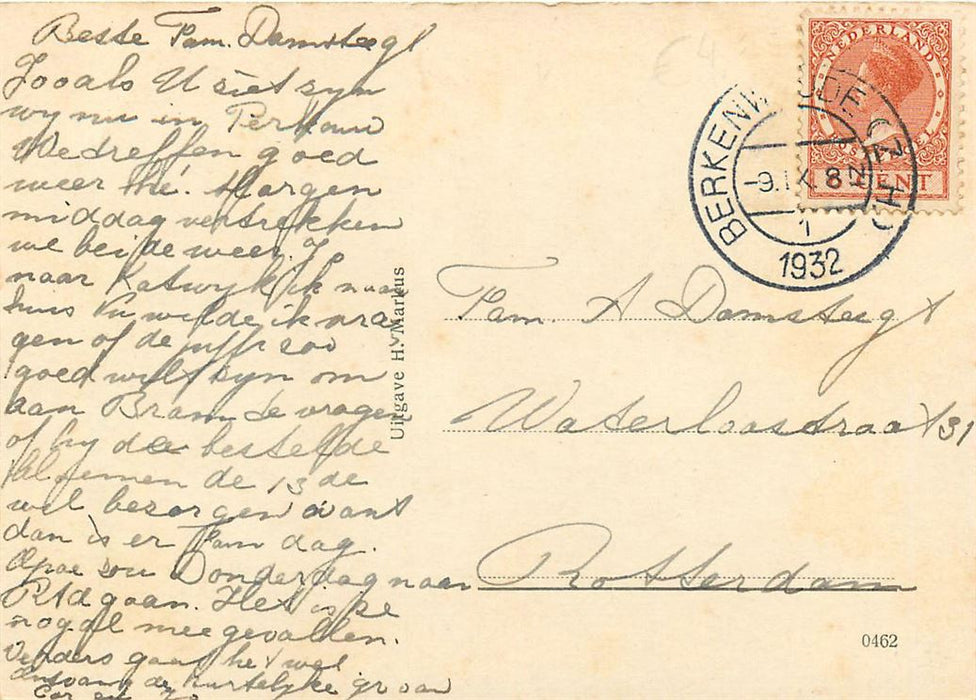 Beste Fam. Damsteegt
Zooals U ziet zyn
wy nu in
We treffen goed
weer hé. Morgen
middag vertrekken
we beide weer. J.
naar Katwyk ik naar
huis Nu wilde ik vra
gen of de juffr zoo
goed wilt zyn om
aan Bram te vragen
of hy de bestelde
bloemen de 13 de
wil bezorgen want
dan is er Fam dag.
Opoe zou Donderdag naar
R'dgaan. Het is ze
nogal meegevallen.
Verders gaat het wel
Ontvang de hartelyke gr van
Cor en
Uitgave H. Markus
NEDERLAND
CENT
BERKENWOUDE (Z.H.)
-9.IX. 8 N
1
1932
€ 4
Fam. A Damsteegt
Waterloostraat 131
Rotterdam
0462